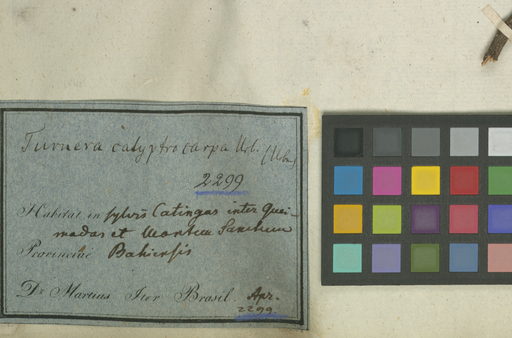 Turnera calyptrocarpa Urb. (Urban)
2299
Habitat in sylvis Catingas inter Quei-
madas et Montem Sanctum
Provinciae Bahiensis
Dr Martius Iter Brasil. Apr.
2299